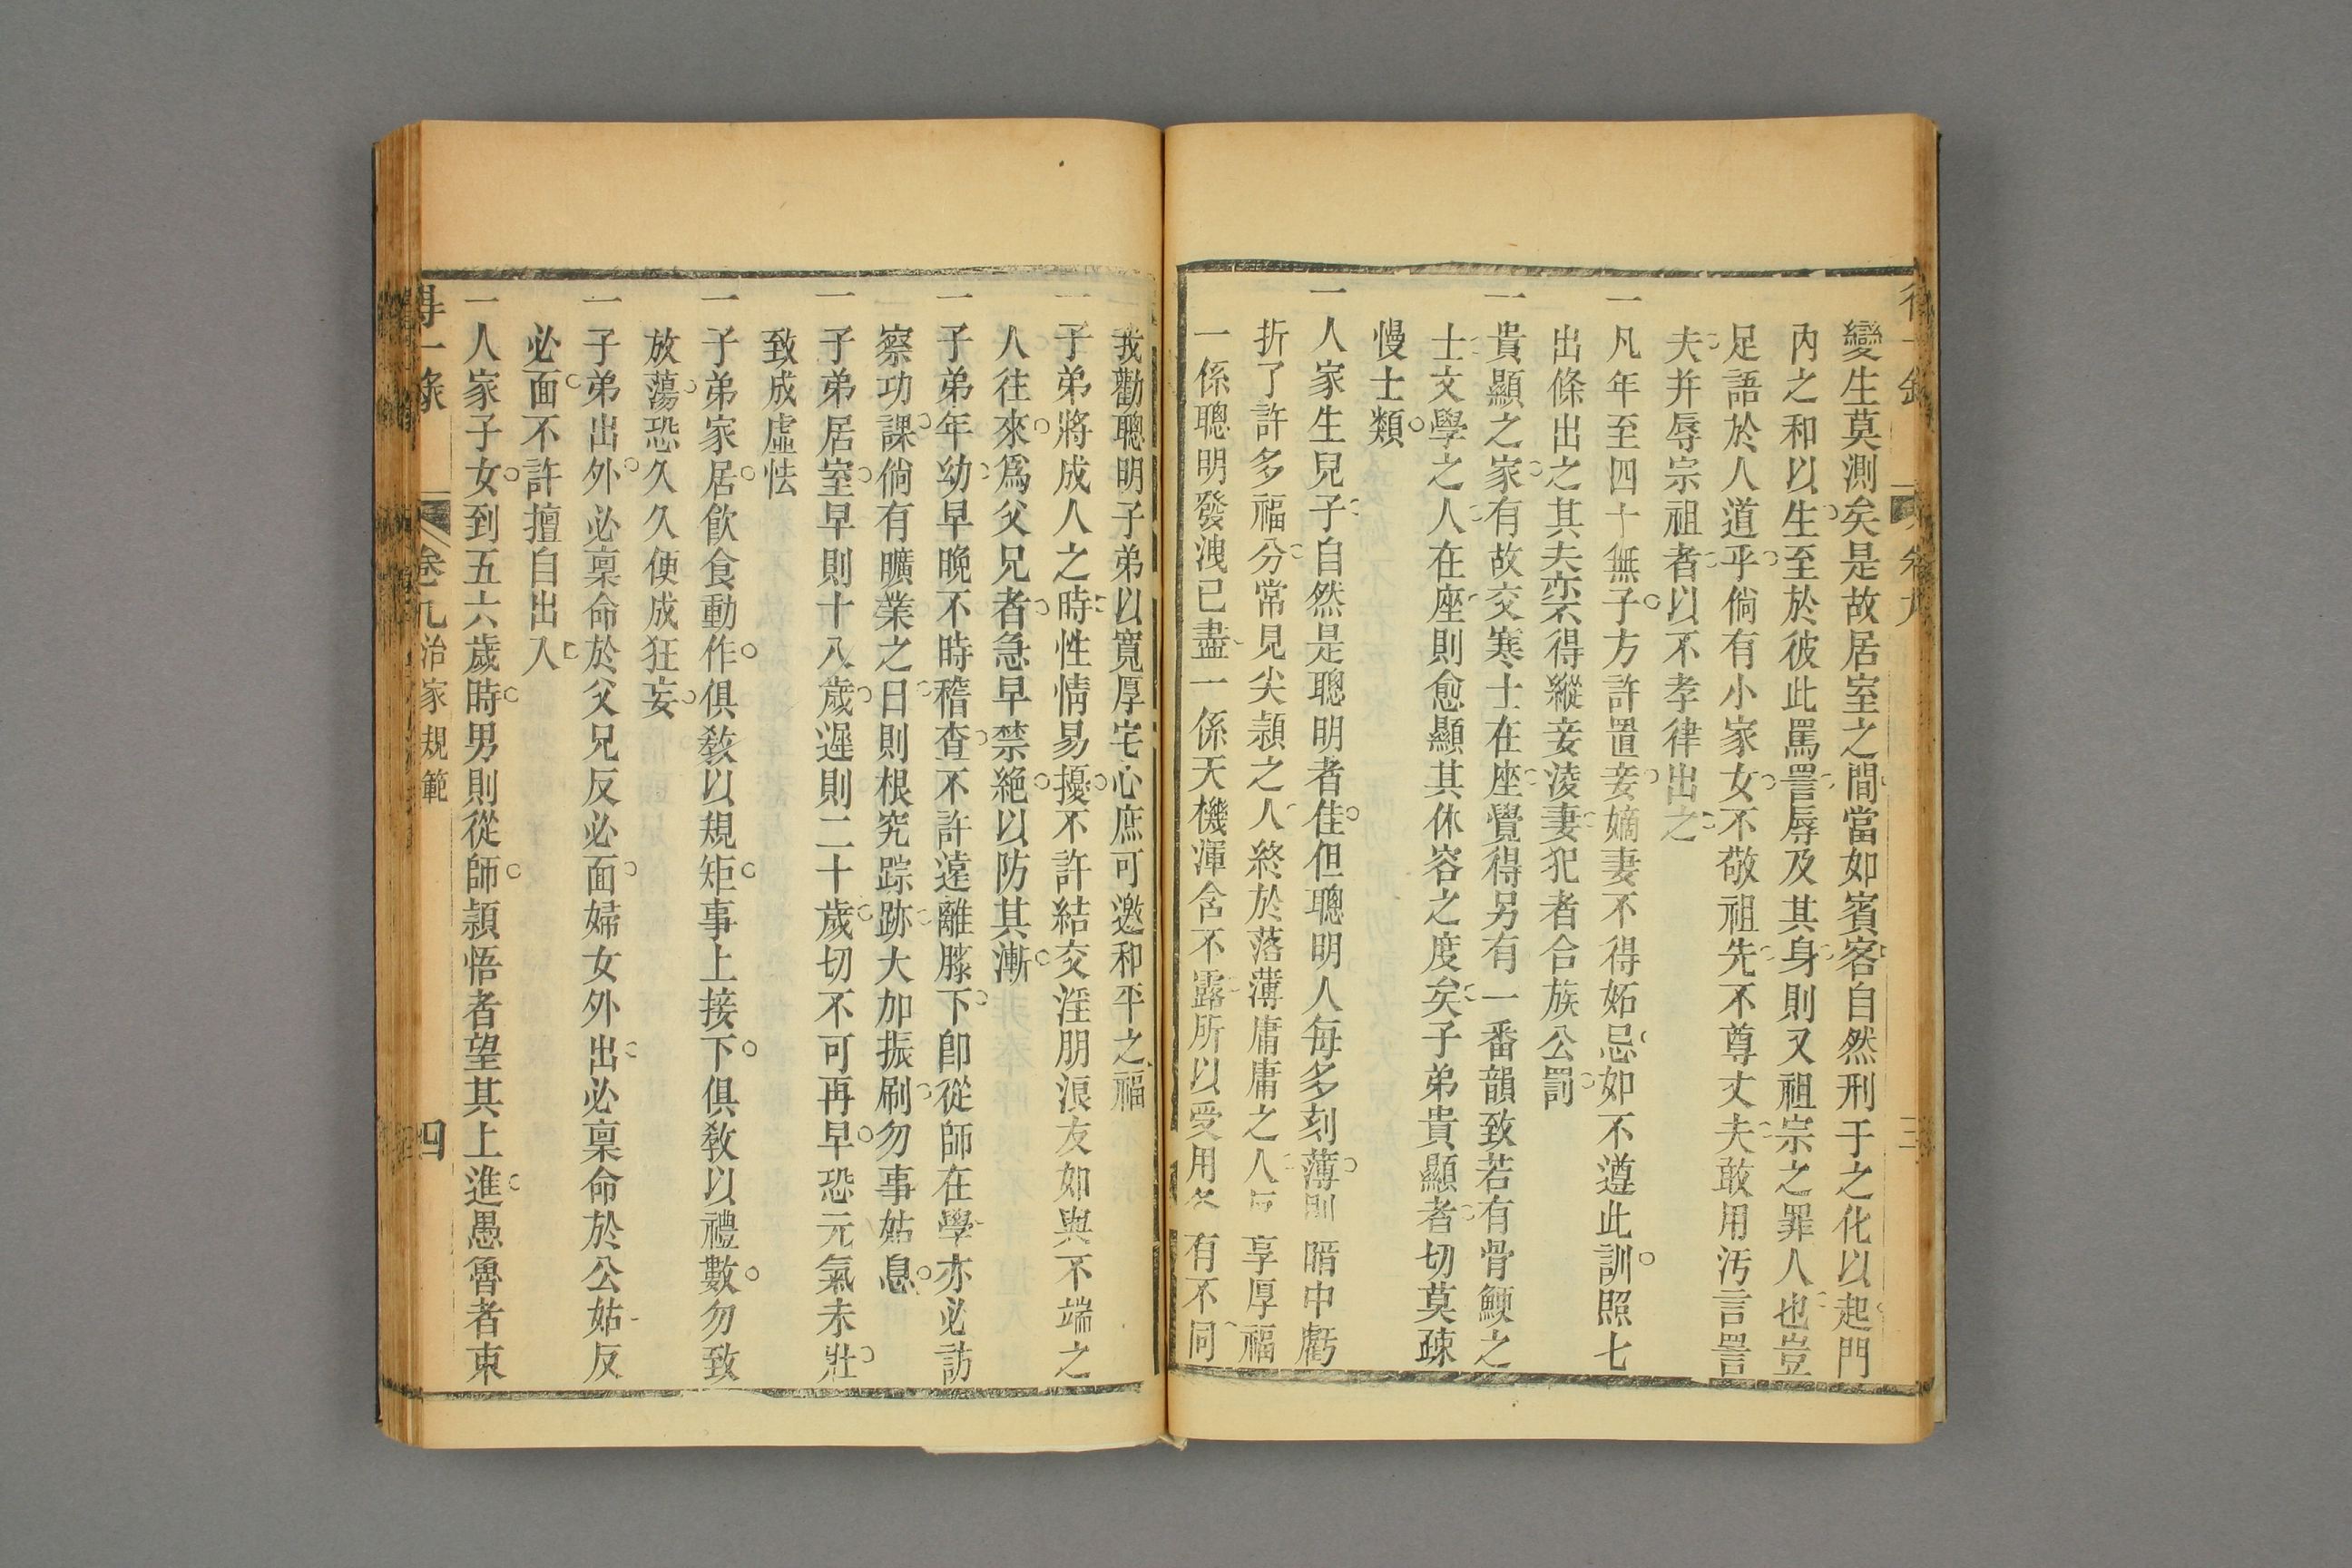 變生莫測矣是故居室之間當如賓客自然刑于之化以起門
內之和以生至於彼此罵詈辱及其身則又祖宗之罪人也豈
足語於人道乎倘有小家女不敬祖先不尊丈夫敢用汚言詈
夫并辱宗祖者以不孝律出之
一凡年至四十無子方許置妾嫡妻不得妬忌如不遵此訓照七
出條出之其夫亦不得縱妾淩妻犯者合族公罰
一貴顯之家有故交寒士在座覺得另有一番韻致若有骨鯁之
士文學之人在座則愈顯其休容之度矣子弟貴顯者切莫疎
慢士類
一人家生兒子自然是聰明者佳但聰明人每多刻薄則暗中虧
折了許多福分常見尖頴之人終於落薄庸庸之人反享厚福
一係聰明發洩已盡一係天機渾含不露所以受用各有不同
我勸聰明子弟以寬厚宅心庶可邀和平之福
一子弟將成人之時性情易擾不許結交淫朋浪友如與不端之
人往來爲父兄者急早禁絕以防其漸
一子弟年幼早晚不時稽查不許遠離膝下卽從師在學亦必訪
察功課倘有曠業之日則根究踪跡大加振刷勿事姑息
一子弟居室早則十八歲遲則二十歲切不可再早恐元氣未壯
致成虛怯
一子弟家居飮食動作俱敎以規矩事上接下俱敎以禮數勿致
放蕩恐久久便成狂妄
一子弟出外必稟命於父兄反必面婦女外出必稟命於公姑反
必面不許擅自出入
一人家子女到五六歲時男則從師頴悟者望其上進愚魯者束
得一錄 卷九治家規範 四